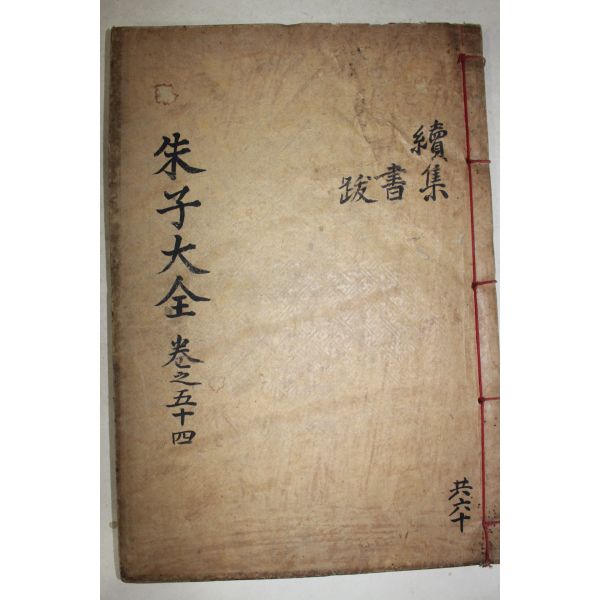 續集
書
跋
共六十
朱子大全 卷之五十四